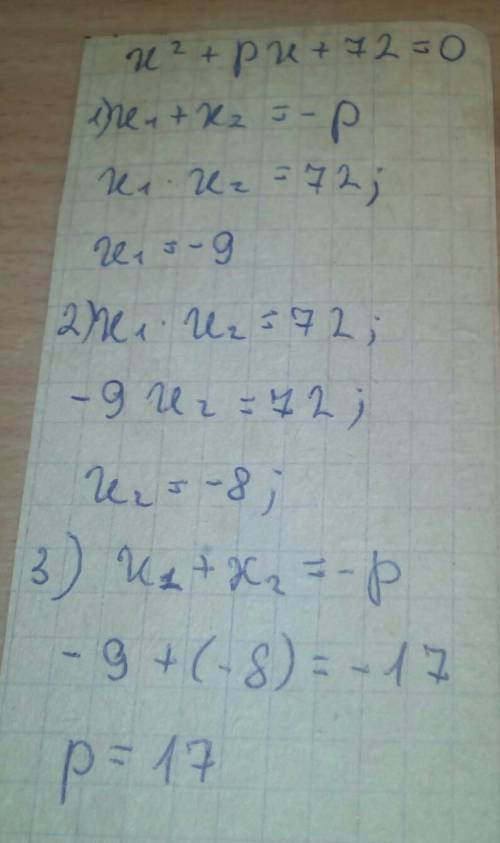 x² + px + 72 = 0
1) x₁ + x₂ = -p
x₁ · x₂ = 72;
x₁ = -9
2) x₁ · x₂ = 72;
-9 x₂ = 72;
x₂ = -8;
3) x₁ + x₂ = -p
-9 + (-8) = -17
p = 17